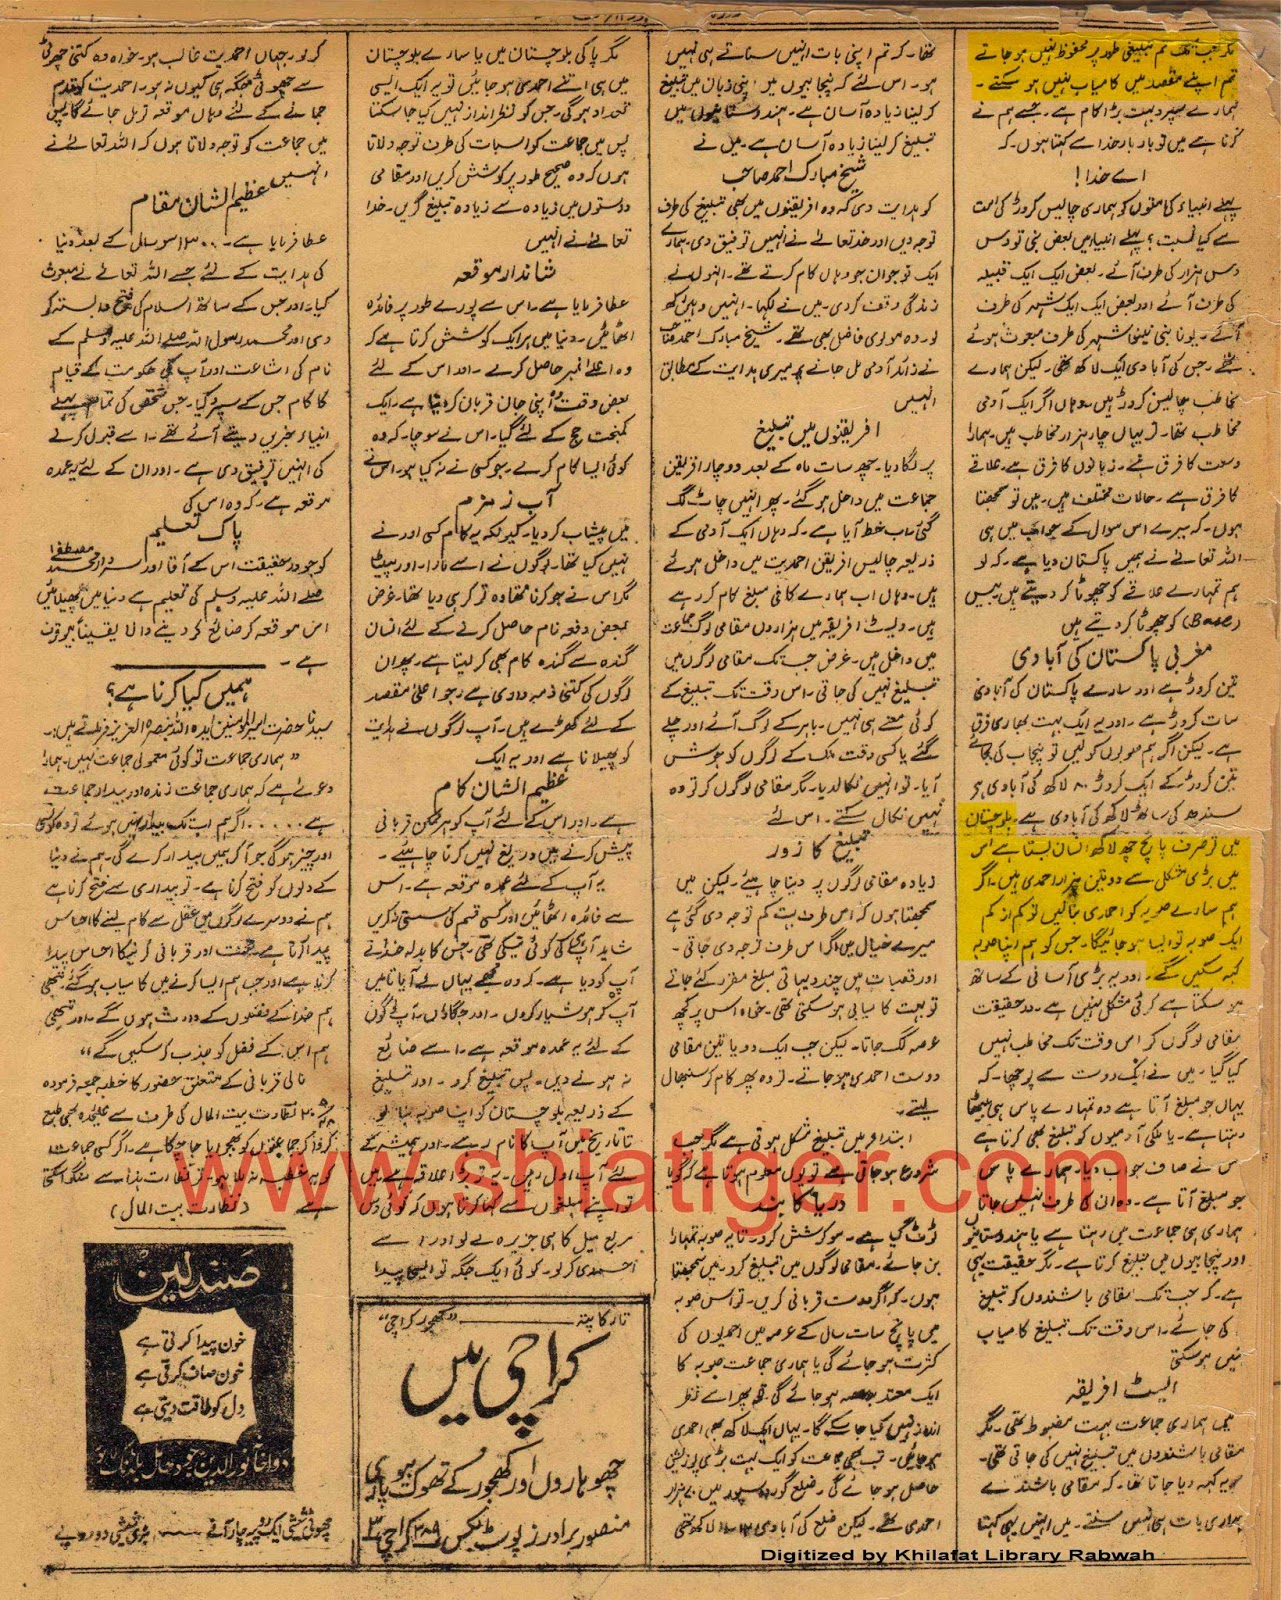 مگر جب تک تم تبلیغی طور پر محفوظ نہیں ہو جاتے
تم اپنے مقصد میں کامیاب نہیں ہو سکتے۔
ہمارے سپرد بہت بڑا کام ہے۔ جسے ہم نے
کرنا ہے میں تو بار بار خدا سے کہتا ہوں۔ کہ
اے خدا!
پہلے انبیاء کی امتوں کو ہماری چالیس کروڑ کی امت
سے کیا نسبت؟ پہلے انبیاء میں بعض نبی تو دس
دس ہزار کی طرف آئے۔ بعض ایک ایک قبیلہ
کی طرف آئے اور بعض ایک ایک شہر کی طرف
آئے۔ یونا نبی نینوٰی شہر کی طرف مبعوث ہوئے
تھے۔ جس کی آبادی ایک لاکھ تھی۔ لیکن ہمارے
مخاطب چالیس کروڑ ہیں۔ وہاں اگر ایک آدمی
مخاطب تھا۔ تو یہاں چار ہزار مخاطب ہیں۔ ہمارا
وسعت کا فرق ہے۔ زبانوں کا فرق ہے۔ علاقے
کا فرق ہے۔ حالات مختلف ہیں۔ میں تو سمجھتا
ہوں۔ کہ میرے اس سوال کے جواب میں ہی
اللہ تعالیٰ نے ہمیں پاکستان دیا ہے۔ کہ لو
ہم تمہارے علاقے کو چھوٹا کر دیتے ہیں بیس
(Base) کو چھوٹا کر دیتے ہیں
مغربی پاکستان کی آبادی
تین کروڑ ہے اور سارے پاکستان کی آبادی
سات کروڑ ہے۔ اور یہ ایک بہت بھاری فرق
ہے۔ لیکن اگر ہم صوبوں کو لیں تو پنجاب کی بجائے
تین کروڑ کے ایک کروڑ ۸۰ لاکھ کی آبادی ہے
سندھ کی ساٹھ لاکھ کی آبادی ہے۔ بلوچستان
میں تو صرف پانچ چھ لاکھ انسان بستا ہے اس
میں بڑی مشکل سے دو تین ہزار احمدی ہیں۔ اگر
ہم سارے صوبہ کو احمدی بنا لیں تو کم از کم
ایک صوبہ تو ایسا ہو جائیگا۔ جس کو ہم اپنا صوبہ
کہہ سکیں گے۔ اور یہ بڑی آسانی کے ساتھ
ہو سکتا ہے کوئی مشکل نہیں ہے۔ درحقیقت
مقامی لوگوں کو اس وقت تک مخاطب نہیں
کیا گیا۔ میں نے ایک دوست سے پوچھا۔ کہ
یہاں جو مبلغ آتا ہے وہ تمہارے پاس ہی بیٹھا
رہتا ہے۔ یا ملکی آدمیوں کو تبلیغ بھی کرتا ہے
اس نے صاف جواب دیا۔ ہمارے پاس
جو مبلغ آتا ہے۔ وہ ان کی طرف نہیں جاتا
ہماری ہی جماعت میں رہتا ہے یا ہندوستانیوں
اور پنجابیوں میں تبلیغ کرتا ہے۔ مگر حقیقت یہی
ہے۔ کہ جب تک مقامی باشندوں کو تبلیغ
کی جائے۔ اس وقت تک تبلیغ کامیاب
نہیں ہو سکتی
ایسٹ افریقہ
میں ہماری جماعت بہت مضبوط تھی۔ مگر
مقامی باشندوں میں تبلیغ نہیں کی جاتی تھی۔
یہ کہہ دیا جاتا تھا۔ کہ مقامی باشندے
ہماری بات ہی نہیں سنتے۔ میں انہیں یہی کہتا
تھا۔ کہ تم اپنی بات انہیں سناتے ہی نہیں
ہو۔ اس لئے کہ پنجابیوں میں اپنی زبان میں تبلیغ
کر لینا زیادہ آسان ہے۔ ہندوستانیوں میں
تبلیغ کر لینا زیادہ آسان ہے۔ میں نے
شیخ مبارک احمد صاحب
کو ہدایت دی کہ وہ افریقنوں میں بھی تبلیغ کی طرف
توجہ دیں اور خدا تعالےٰ نے انہیں توفیق دی۔ ہمارے
ایک نوجوان جو وہاں کام کرتے تھے۔ انہوں نے
زندگی وقف کر دی۔ میں نے لکھا۔ انہیں وہیں رکھ
لو۔ وہ مولوی فاضل بھی تھے۔ شیخ مبارک احمد صاحب
نے زائد آدمی مل جانے پر میری ہدایت کے مطابق
انہیں
افریقنوں میں تبلیغ
پر لگا دیا۔ چھ سات ماہ کے بعد دو چار افریقن
جماعت میں داخل ہو گئے۔ پھر انہیں چاٹ لگ
گئی اب خط آیا ہے۔ کہ وہاں ایک آدمی کے
ذریعہ چالیس افریقن احمدیت میں داخل ہوئے
ہیں۔ وہاں اب ہمارے کافی مبلغ کام کر رہے
ہیں۔ ویسٹ افریقہ میں ہزاروں مقامی لوگ جماعت
میں داخل ہیں۔ غرض جب تک مقامی لوگوں میں
تبلیغ نہیں کی جاتی۔ اس وقت تک تبلیغ کے
کوئی معنے ہی نہیں۔ باہر کے لوگ آئے اور چلے
گئے یا کسی وقت ملک کے لوگوں کو جوش
آیا۔ تو انہیں نکال دیا۔ مگر مقامی لوگوں کو تو وہ
نہیں نکال سکتے۔ اس لئے
تبلیغ کا زور
زیادہ مقامی لوگوں پر دینا چاہیئے۔ لیکن میں
سمجھتا ہوں کہ اس طرف بہت کم توجہ دی گئی ہے
میرے خیال میں اگر اس طرف توجہ دی جاتی۔
اور قصبات میں چند دیہاتی مبلغ مقرر کئے جاتے
تو بہت کامیابی ہو سکتی تھی۔ خواہ اس پر کچھ
عرصہ لگ جاتا۔ لیکن جب ایک دو یا تین مقامی
دوست احمدی ہو جاتے۔ تو وہ پھر کام کو سنبھال
لیتے۔
ابتداء میں تبلیغ مشکل ہوتی ہے مگر جب
شروع ہو جاتی ہے تو یوں معلوم ہوتا ہے کہ گویا
دریا کا بند
ٹوٹ گیا ہے۔ سو کوشش کرو تا یہ صوبہ تمہارا
بن جائے۔ مقامی لوگوں میں تبلیغ کرو۔ میں سمجھتا
ہوں۔ کہ اگر دوست قربانی کریں۔ تو اس صوبہ
میں پانچ سات سال کے عرصہ میں احمدیوں کی
کثرت ہو جائے گی یا ہماری جماعت صوبہ کا
ایک معتدبہ حصہ ہو جائے گی۔ پھر اسے نظر
انداز نہیں کیا جا سکے گا۔ یہاں ایک لاکھ بھی احمدی
ہو جائیں۔ تب بھی جماعت کو ایک بہت بڑی پوزیشن
حاصل ہو جائے گی۔ ضلع گورداسپور میں ۷۰ ہزار
احمدی تھے۔ لیکن ضلع کی آبادی لاکھ تھی
مگر پاکی بلوچستان میں یا سارے بلوچستان
میں ہی اتنے احمدی ہو جائیں تو یہ ایک ایسی
تعداد ہو گی۔ جس کو نظر انداز نہیں کیا جا سکتا
پس میں جماعت کو اس بات کی طرف توجہ دلاتا
ہوں کہ وہ صحیح طور پر کوشش کریں اور مقامی
دوستوں میں زیادہ سے زیادہ تبلیغ کریں۔ خدا
تعالےٰ نے انہیں
شاندار موقعہ
عطا فرمایا ہے۔ اس سے پورے طور پر فائدہ
اٹھائیں۔ دنیا میں ہر ایک کوشش کرتا ہے کہ
وہ اعلےٰ نمبر حاصل کرے۔ اور اس کے لئے
بعض وقت وہ اپنی جان قربان کر دیتا ہے۔ ایک
کمبخت حج کے لئے گیا۔ اس نے سوچا۔ کہ وہ
کوئی ایسا کام کرے۔ جو کسی نے نہ کیا ہو۔ اس نے
آب زمزم
میں پیشاب کر دیا۔ کیونکہ یہ کام کسی اور نے
نہیں کیا تھا۔ لوگوں نے اسے مارا۔ اور پیٹا
مگر اس نے جو کرنا تھا وہ تو کر ہی دیا تھا۔ غرض
بعض دفعہ نام حاصل کرنے کے لئے انسان
گندہ سے گندہ کام بھی کر لیتا ہے۔ پھر ان
لوگوں کی کتنی ذمہ داری ہے۔ جو اعلیٰ مقصد
کے لئے کھڑے ہیں۔ آپ لوگوں نے ہدایت
کو پھیلانا ہے اور یہ ایک
عظیم الشان کام
ہے۔ اور اس کے لئے آپ کو ہر ممکن قربانی
پیش کرنے میں دریغ نہیں کرنا چاہیئے۔
یہ آپ کے لئے عمدہ موقعہ ہے۔ اس
سے فائدہ اٹھائیں اور کسی قسم کی سستی نہ کریں
شاید آپ کی کوئی نیکی تھی۔ جس کا بدلہ خدا نے
آپ کو دیا ہے۔ کہ وہ مجھے یہاں لے آیا تا میں
آپ کو ہوشیار کروں۔ اور جگاؤں۔ آپ لوگوں
کے لئے یہ عمدہ موقعہ ہے۔ اسے ضائع
نہ ہونے دیں۔ پس تبلیغ کرو۔ اور تبلیغ
کے ذریعہ بلوچستان کو اپنا صوبہ بنا لو
تا تاریخ میں آپ کا نام رہے۔ اور ہمیشہ کے
لئے آپ اول رہیں۔ یہ تو بڑا علاقہ ہے میں
تو اپنے مبلغوں سے کہا کرتا ہوں کہ کوئی دس
مربع میل کا ہی جزیرہ لے لو اور اسے
احمدی کر لو۔ کوئی ایک جگہ تو ایسی پیدا
تار کا پتہ ——— "کھجور کراچی"
کراچی میں
چھوہاروں اور کھجور کے تھوک بیوپاری
منصور برادرز پوسٹ بکس ۲۸۹ کراچی ۳
کر لو۔ جہاں احمدیت غالب ہو۔ خواہ وہ کتنی چھوٹی
سے چھوٹی جگہ ہی کیوں نہ ہو۔ احمدیت کو قدم
جمانے کے لئے وہاں موقعہ تو مل جائے گا۔ پس
میں جماعت کو توجہ دلاتا ہوں کہ اللہ تعالےٰ نے
انہیں
عظیم الشان مقام
عطا فرمایا ہے۔ ۱۳۰۰ سو سال کے بعد دنیا
کی ہدایت کے لئے جسے اللہ تعالےٰ نے مبعوث
کیا۔ اور جس کے ساتھ اسلام کی فتح وابستہ کر
دی اور محمد رسول اللہ صلے اللہ علیہ وسلم کے
نام کی اشاعت اور آپ کی حکومت کے قیام
کا کام جس کے سپرد کیا۔ جس شخص کی تمام پہلے
انبیاء خبریں دیتے آئے تھے۔ اسے قبول کرنے
کی انہیں توفیق دی ہے۔ اور ان کے لئے یہ عمدہ
موقعہ ہے۔ کہ وہ اس کی
پاک تعلیم
کو جو درحقیقت اس کے آقا اور سردار محمد مصطفےٰ
صلے اللہ علیہ وسلم کی تعلیم ہے دنیا میں پھیلائیں
اس موقعہ کو ضائع کر دینے والا یقیناً بیوقوف
ہے۔
ہمیں کیا کرنا ہے؟
سیدنا حضرت امیر المومنین ایدہ اللہ بنصرہ العزیز فرماتے ہیں:۔
"ہماری جماعت تو کوئی معمولی جماعت نہیں۔ ہمارا
دعوےٰ ہے کہ ہماری جماعت زندہ اور بیدار جماعت
ہے..... اگر ہم اب تک بیدار نہیں ہوئے تو وہ کونسی
اور چیز ہو گی جو آ کر ہمیں بیدار کرے گی۔ ہم نے دنیا
کے دلوں کو فتح کرنا ہے۔ تو بیداری سے فتح کرنا ہے
ہم نے دوسرے لوگوں میں عقل سے کام لینے کا احساس
پیدا کرنا ہے۔ محنت اور قربانی کرنیکا احساس پیدا
کرنا ہے اور جب ہم ایسا کرنے میں کامیاب ہو گئے تبھی
ہم خدا کے فضلوں کے وارث ہوں گے۔ اور تبھی
ہم اس کے فضل کو جذب کر سکیں گے"
مالی قربانی کے متعلق حضور کا خطبہ جمعہ فرمودہ
نظارت بیت المال کی طرف سے علیحدہ بھی طبع
کروا کر جماعتوں کو بھجوایا جا چکا ہے۔ اگر کسی جماعت
کو یہ خطبہ نہ ملا ہو۔ تو نظارت ہذا سے منگوا سکتی
ہے (نظارت بیت المال)
صندلین
خون پیدا کرتی ہے
خون صاف کرتی ہے
دل کو طاقت دیتی ہے
چھوٹی شیشی ایک روپیہ چار آنے —— بڑی شیشی دو روپے
www.shiatiger.com
Digitized by Khilafat Library Rabwah